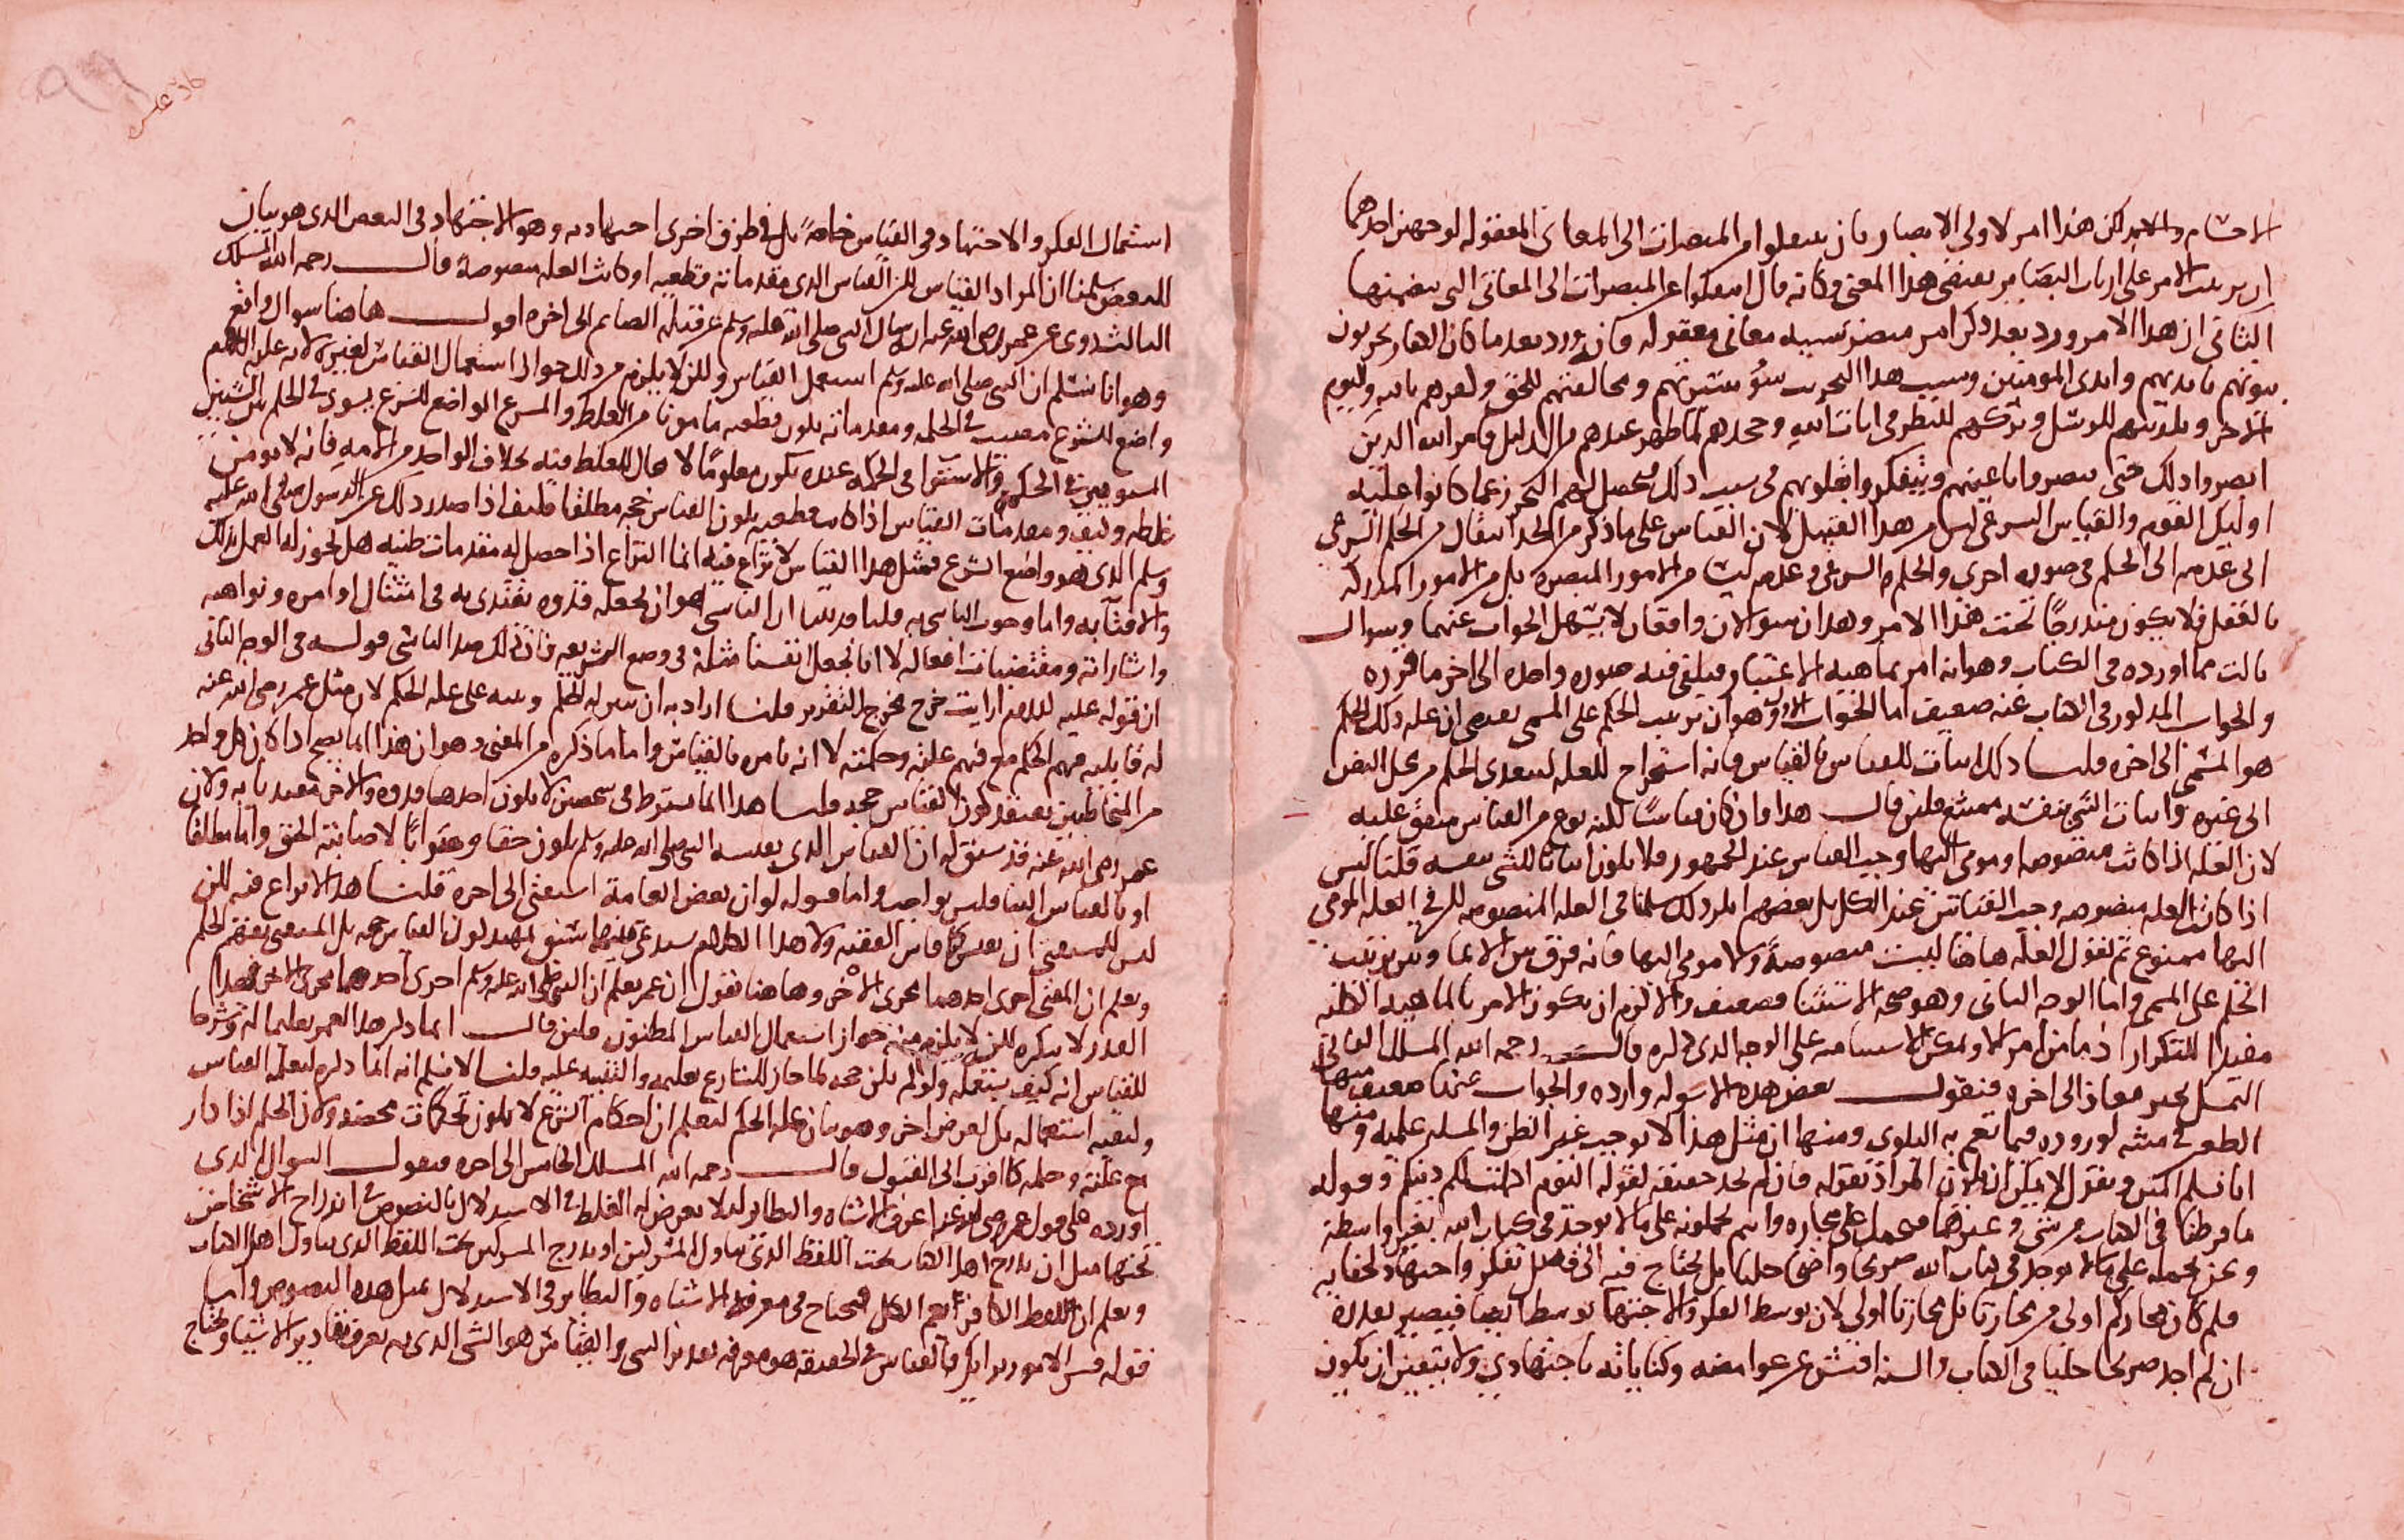 هذا امر لاولى الابصار بان من المبصرات الى المعانى المعقوله لوجهين احدهما
الامر على ارباب البصاير يقتضى هذا المعنى وكانه قال عن المبصرات الى المعانى التى
الثانى ان هذا الامر ورد بعد ذكر امر معانى معقوله فانه ورد بعد ما كان الكفار يخربون
بيوتهم بايديهم وايدى المومنين وسبب هذا التخريب سوء ومخالفتهم للحق وكفرهم بالله واليوم
الاخر وتكذيبهم للرسل وتركهم للنظر فى ايات الله وجحدهم لما ظهر عندهم من الدليل فامر الله الذين
ابصروا ذلك حتى باعينهم بقلوبهم فى سبب ذلك لهم عما كانوا عليه
اوليك القوم والقياس الشرعى ليس من هذا القبيل لان القياس على ما ذكر من الحد انتقال من الحكم الشرعى
او عدمه الى الحكم فى صوره اخرى والحكم الشرعى وعدمه ليسا من الامور المبصره بل من الامور المدركه
بالعقل فلا يكون مندرجا تحت هذا الامر وهذان سوالان واقعان لا يسهل الجواب عنهما وسوال
ثالث مما اورده فى الكتاب وهو انه امر بماهيه الاعتبار فيكفى فيه صوره واحده الى اخر ما قرره
والجواب المذكور فى الكتاب عنه ضعيف اما الجواب الاول وهو ان ترتيب الحكم على المسمى يقتضى ان عله ذلك الحكم
هو المسمى الى اخره قلنا ذلك اثبات للقياس بالقياس فانه استخراج للعله ليتعدى الحكم من محل النص
الى غيره واثبات الشى بنفسه ممتنع فلئن قال هذا وان كان قياسا لكنه نوع من القياس متفق عليه
لان العله اذا كانت منصوصه او مومى اليها وجب القياس عند الجمهور فلا يكون اثباتا للشى بنفسه قلنا ليس
اذا كان العله منصوصه وجب القياس عند الكل بل بعضهم انكر ذلك سلمنا فى العله المنصوصه لكن فى العله المومى
اليها ممنوع ثم نقول العله هاهنا ليست منصوصة ولا مومى اليها فانه فرق بين الايما وبين ترتيب
الحكم على المسمى واما الوجه الثانى وهو صحه الاستثنا فضعيف والا لزم ان يكون الامر بالماهيه الكليه
مفيدا للتكرار اذ ما من امر الا ويمكن الاستثنا منه على الوجه الذى ذكره قال رحمه الله المسلك الثانى
التمسك بخبر معاذ الى اخره فنقول بعض هذه الاسوله وارده والجواب عنها ضعيف منها
الطعن فى متنه لوروده فيما تعم به البلوى ومنها ان مثل هذا لا يوجب غير الظن والمسله علميه ومنها
انا نسلم المتن ونقول لا يمكن ان يكون المراد بقوله فان لم تجد حقيقه لقوله اليوم اكملت لكم دينكم وقوله
ما فرطنا فى الكتاب من شى وغيرهما فيحمل على مجازه وانتم تحملونه على ما لا يوجد فى كتاب الله بغير واسطة
ونحن نحمله على ما لا يوجد فى كتاب الله صريحا واضحا جليا بل يحتاج فيه الى فضل تفكر واجتهاد لخفايه
فلم كان مجازكم اولى من مجازنا بل مجازنا اولى لان توسط الفكر والاجتهاد توسط ايضا فيصير تقديره
ان لم اجد صريحا جليا فى الكتاب والسنه افتش عن غوامضه وكناياته باجتهادى ولا يتعين ان يكون
استعمال الفكر والاجتهاد فى القياس خاصة بل فى طرق اخرى اجتهاديه وهو الاجتهاد فى النص الذى هو بيان
للبعض سلمنا ان المراد القياس لكن القياس الذى مقدماته قطعيه او كانت العله منصوصة قال رحمه الله المسلك
الثالث روى عن عمر رضى الله عنه انه سال النبى صلى الله عليه وسلم عن قبله الصايم الى اخره اقول هاهنا سوال واقع
وهو انا نسلم ان النبى صلى الله عليه وسلم استعمل القياس ولكن لا يلزم من ذلك جواز استعمال القياس لغيره لانه عليه السلم
واضع للشرع مصيب فى الحكم ومقدماته تكون قطعيه مامونا من الغلط والشرع الواضع للشرع يسوى فى الحكم بين الشيئين
المستويين فى الحكمه والاستوا فى الحكمه عنده يكون معلوما لا مجال للغلط فيه بخلاف الواحد من الامه فانه لا يومن
غلطه وكيف ومقدمات القياس اذا كانت قطعيه يكون القياس حجه مطلقا فكيف اذا صدر ذلك عن الرسول صلى الله عليه
وسلم الذى هو واضع الشرع فمثل هذا القياس لا نزاع فيه انما النزاع اذا حصل له مقدمات ظنيه هل يجوز له العمل بذلك
والافتا به واما وجوب التاسى به قلنا قد بينا ان التاسى هو ان نجعله قدوه نقتدى به فى امتثال اوامره ونواهيه
واشاراته ومقتضيات افعاله لا انا نجعل انفسنا مثله فى وضع الشريعه فان ذلك ضد التاسى قوله فى الوجه الثانى
ان قوله عليه السلم ارايت خرج مخرج التقرير قلنا اراد به ان يبين له الحكم وينبه على عله الحكم لان مثل عمر رضى الله عنه
له قابليه فهم الحكم مع فهم علته وحكمته لا انه يامره بالقياس واما ما ذكره من المعنى وهو ان هذا انما يصح اذا كان كل واحد
من المخاطبين يعتقد كون القياس حجه قلنا هذا انما يشترط فى شخصين لا يكون احدهما قدوه والاخر مقتديا به ولان
عمر رضى الله عنه قد سبق له ان القياس الذى يقيسه النبى صلى الله عليه وسلم يكون حقا وصوابا لاصابته الحق واما مطلقا
او بالقياس الينا فليس بواجب واما قوله لو ان بعض العامة استفتى الى اخره قلنا هذا لا نزاع فيه لكن
ليس للمستفتى ان يقيس كما قاس الفقيه ولا هذا الكلام يستدعى منهما سبق تمهيد كون القياس حجه بل المستفتى يفهم الحكم
ويعلم ان المفتى اجرى احدهما مجرى الاخر وهاهنا نقول ان عمر يعلم ان النبى صلى الله عليه وسلم اجرى احدهما مجرى الاخر فهذا
القدر لا ننكره لكن لا يلزم منه جواز استعمال القياس المظنون فلئن قال انما ذكر هذا لعمر تعليما له وشرحا
للقياس انه كيف يستعمله ولو لم يكن حجه لما جاز للشارع تعليمه والتنبيه عليه قلنا لا نسلم انه انما ذكره ليعلمه القياس
وكيفيه استعماله بل لغرض اخر وهو بيان عله الحكم ليعلم ان احكام الشرع لا يكون تحكمات محضه ولان الحكم اذا دار
مع علته وحكمه كان اقرب الى القبول قال رحمه الله المسلك الخامس الى اخره فنقول السوال الذى
اورده على قول عمر رضى الله عنه اعرف الاشباه والنظاير ليلا يعرض له الغلط فى الاستدلال بالنصوص فى اندراج الاشخاص
تحتها مثل ان يدرج اهل الكتاب تحت اللفظ الذى يتناول المشركين او يدرج المشركين تحت اللفظ الذى يتناول اهل الكتاب
ويعلم ان لفظ الكافر يعم الكل فيحتاج فى معرفه الاشباه والنظاير فى الاستدلال بمثل هذه النصوص واما
قوله قس الامور برايك فالقياس فى الحقيقه هو معرفه تقدير الشى والقياس هو الشى الذى به يعرف تقادير الاشيا ويحتاج